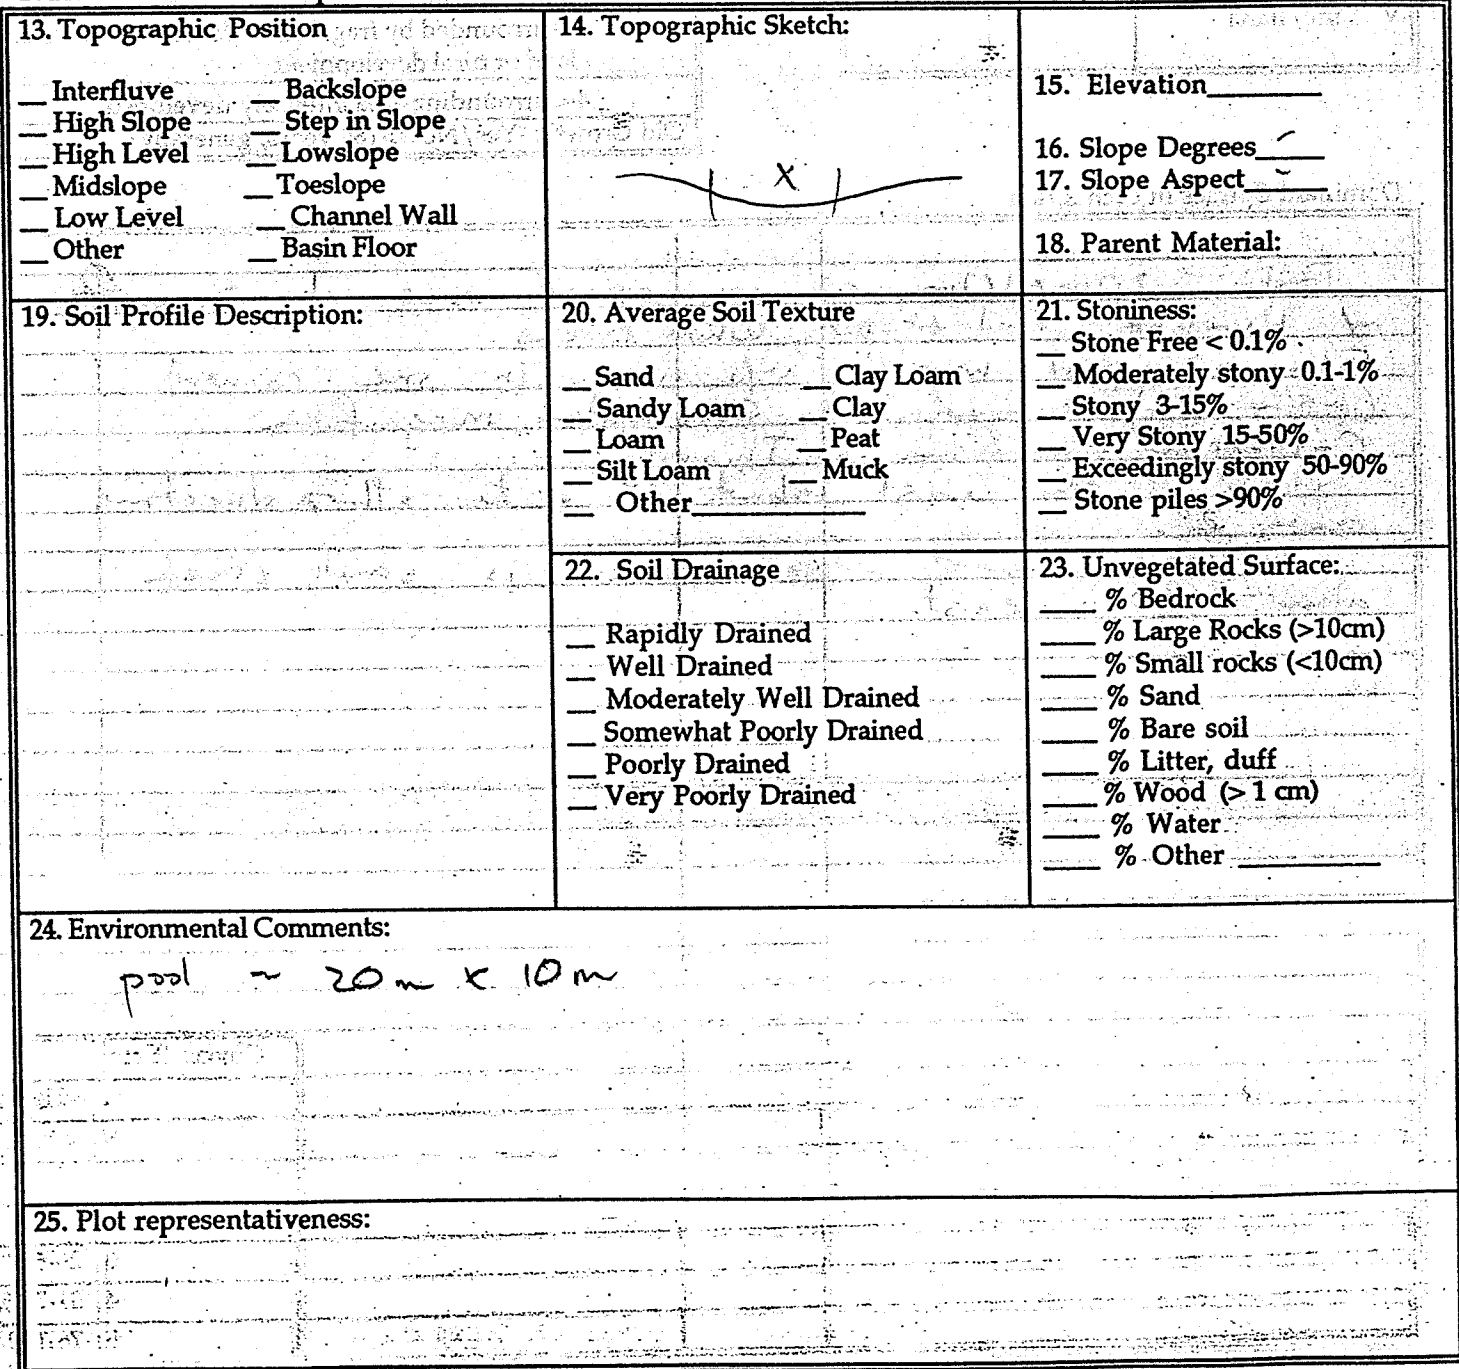 13. Topographic Position
__ Interfluve __ Backslope
__ High Slope __ Step in Slope
__ High Level __ Lowslope
__ Midslope __ Toeslope
__ Low Level __ Channel Wall
__ Other __ Basin Floor
14. Topographic Sketch:
X
15. Elevation________
16. Slope Degrees_____
17. Slope Aspect______
18. Parent Material:
19. Soil Profile Description:
20. Average Soil Texture
__ Sand __ Clay Loam
__ Sandy Loam __ Clay
__ Loam __ Peat
__ Silt Loam __ Muck
__ Other____________
21. Stoniness:
__ Stone Free < 0.1%
__ Moderately stony 0.1-1%
__ Stony 3-15%
__ Very Stony 15-50%
__ Exceedingly stony 50-90%
__ Stone piles >90%
22. Soil Drainage
__ Rapidly Drained
__ Well Drained
__ Moderately Well Drained
__ Somewhat Poorly Drained
__ Poorly Drained
__ Very Poorly Drained
23. Unvegetated Surface:
____ % Bedrock
____ % Large Rocks (>10cm)
____ % Small rocks (<10cm)
____ % Sand
____ % Bare soil
____ % Litter, duff
____ % Wood (> 1 cm)
____ % Water
____ % Other __________
24. Environmental Comments:
pool ~ 20 m x 10 m
25. Plot representativeness: